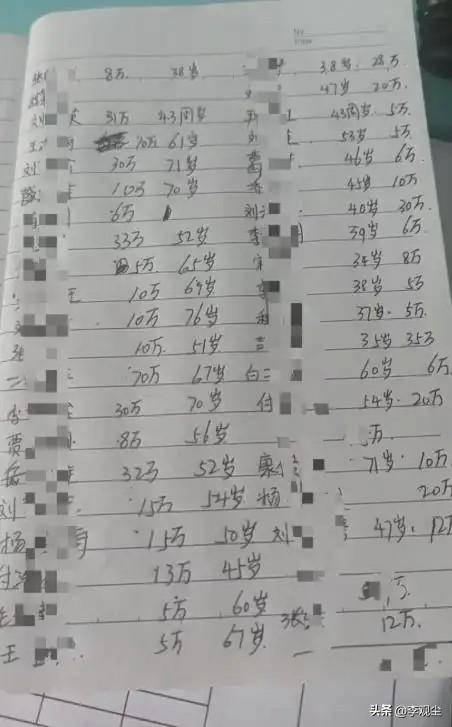 8万 38岁
刘 31万 43周岁
70万 61岁
刘 30万 71岁
70岁
6万
33万 52岁
5万 65岁
10万 69岁
10万 76岁
张 10万 51岁
70万 67岁
李 30万 70岁
贾 8万 56岁
岳 32万 52岁
刘 15万 54岁
杨 15万 50岁
13万 45岁
5万 60岁
王 5万 67岁
38岁 28万
47岁 20万
43周岁 5万
53岁 5万
46岁 6万
45岁 10万
刘 40岁 30万
李 39岁 6万
34岁 8万
38岁 5万
37岁 5万
35岁 35万
白 60岁 6万
付 54岁 20万
万
康 71岁 10万
杨 20万
刘 47岁 12万
万
张 12万
头条 @李观尘